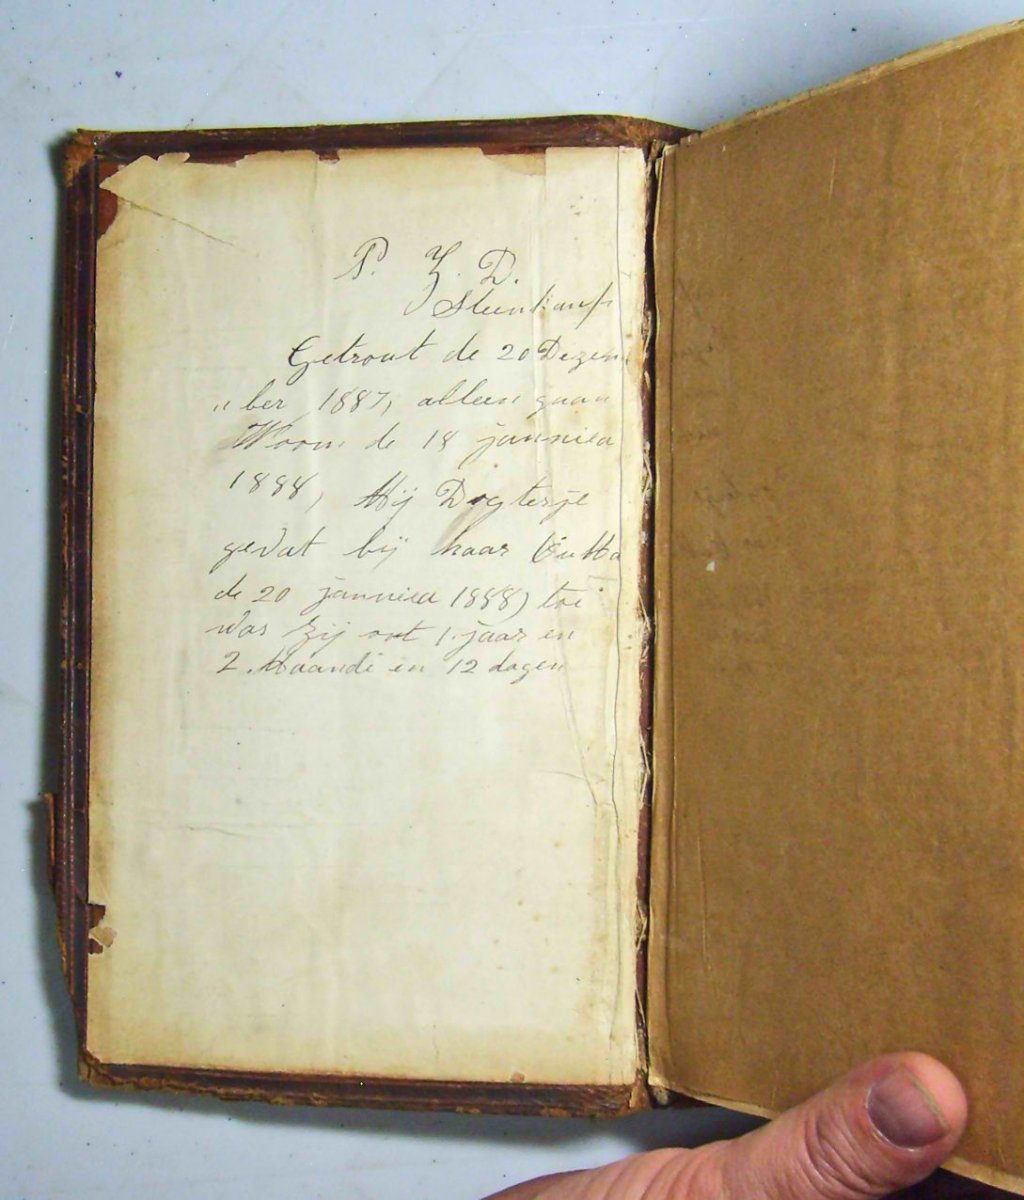 P. Z. D.
Steenkamp
Getrout de 20 Dezem
ber 1887, alleen gaan
Woon de 18 janniea
1888, Mij Dogterje
gevat bij haar
de 20 janniea 1888) toe
was zij out 1. jaar en
2. Maande en 12 dagen